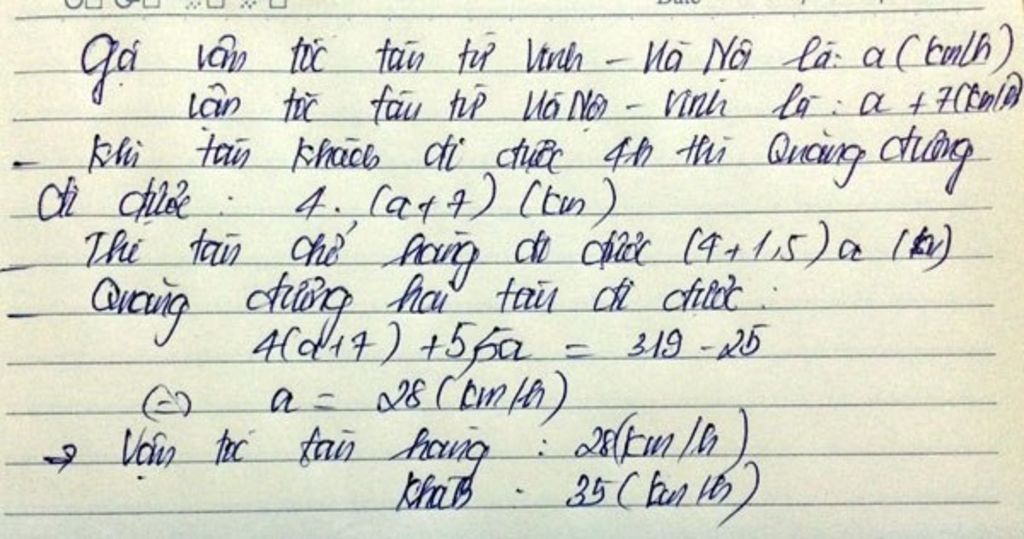 Gọi vận tốc tàu từ Vinh - Hà Nội là: a (km/h)
vận tốc tàu từ Hà Nội - Vinh là: a + 7 (km/h)
- Khi tàu khách đi được 4h thì Quãng đường
đi được: 4. (a+7) (km)
- Thì tàu chở hàng đi được (4+1,5)a (km)
- Quãng đường hai tàu đi được:
4(a+7) + 5,5a = 319 - 25
(=) a = 28 (km/h)
→ Vận tốc tàu hàng : 28 (km/h)
khách : 35 (km/h)